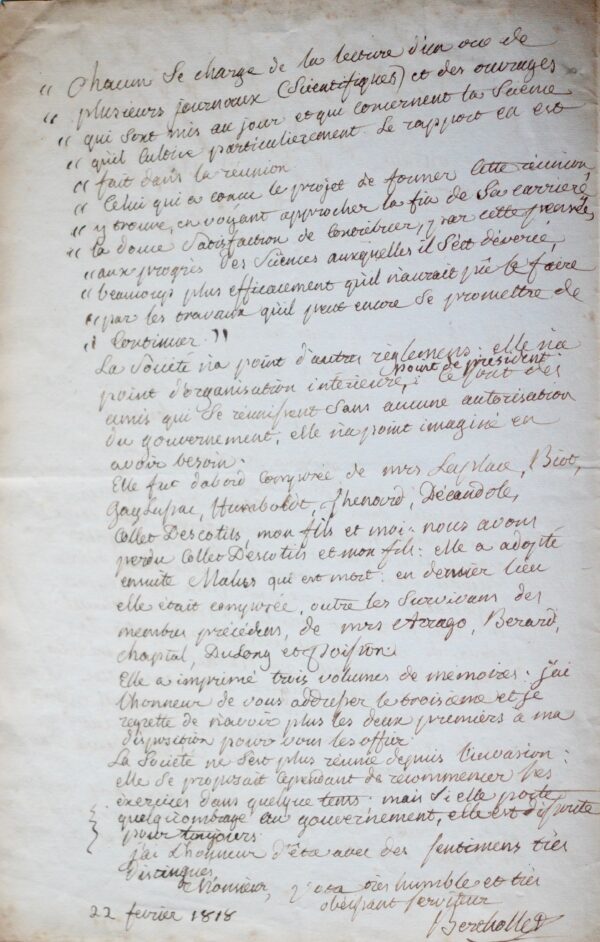 " Chacun se charge de la lecture d'un ou de
" plusieurs journaux (Scientifiques) et des ouvrages
" qui sont mis au jour et qui concernent la Science
" qu'il Cultive particulierement. Le rapport en est
" fait dans la reunion
" Celui qui a concu le projet de former Cette réunion
" y trouve, en voyant approcher la fin de Sa carriere,
" la douce Satisfaction de Contribuer, par cette pensée,
" aux progrès des Sciences auxquelles il s'est dévoué,
" beaucoup plus efficacement qu'il n'aurait pû le faire
" par les travaux qu'il peut encore se promettre de
" Continuer. "
La Société n'a point d'autres règlemens; elle n'a
point de président
point d'organisation intérieure, : ce sont des
amis qui Se réunissent Sans aucune autorisation
du gouvernement, elle n'a point imaginé en
avoir besoin.
Elle fut d'abord Composée de mrs Laplace, Biot,
Gay Lussac, Humboldt, Thenard, Décandole,
Collet Descotils, mon fils et moi : nous avons
perdu Collet Descotils et mon fils : elle a adopté
ensuite Malus qui est mort : en dernier lieu
elle était composée, outre les Survivans des
membres précédens, de mrs Arrago, Berard,
Chaptal, Dulong et Poisson
Elle a imprimé trois volumes de memoires : j'ai
l'honneur de vous addresser le troisieme et je
regrette de n'avoir plus les deux premiers à ma
disposition pour vous les offrir
La Société ne s'est plus réunie depuis l'invasion :
elle Se proposait Cependant de recommencer Ses
exercices dans quelque tems : mais Si elle porte
quelqu'ombrage au gouvernement, elle est dissoute
pour toujours
j'ai l'honneur d'être avec des sentimens très
distingués
Monsieur, Votre très humble et très
obeissant serviteur
22 fevrier 1818 Berthollet